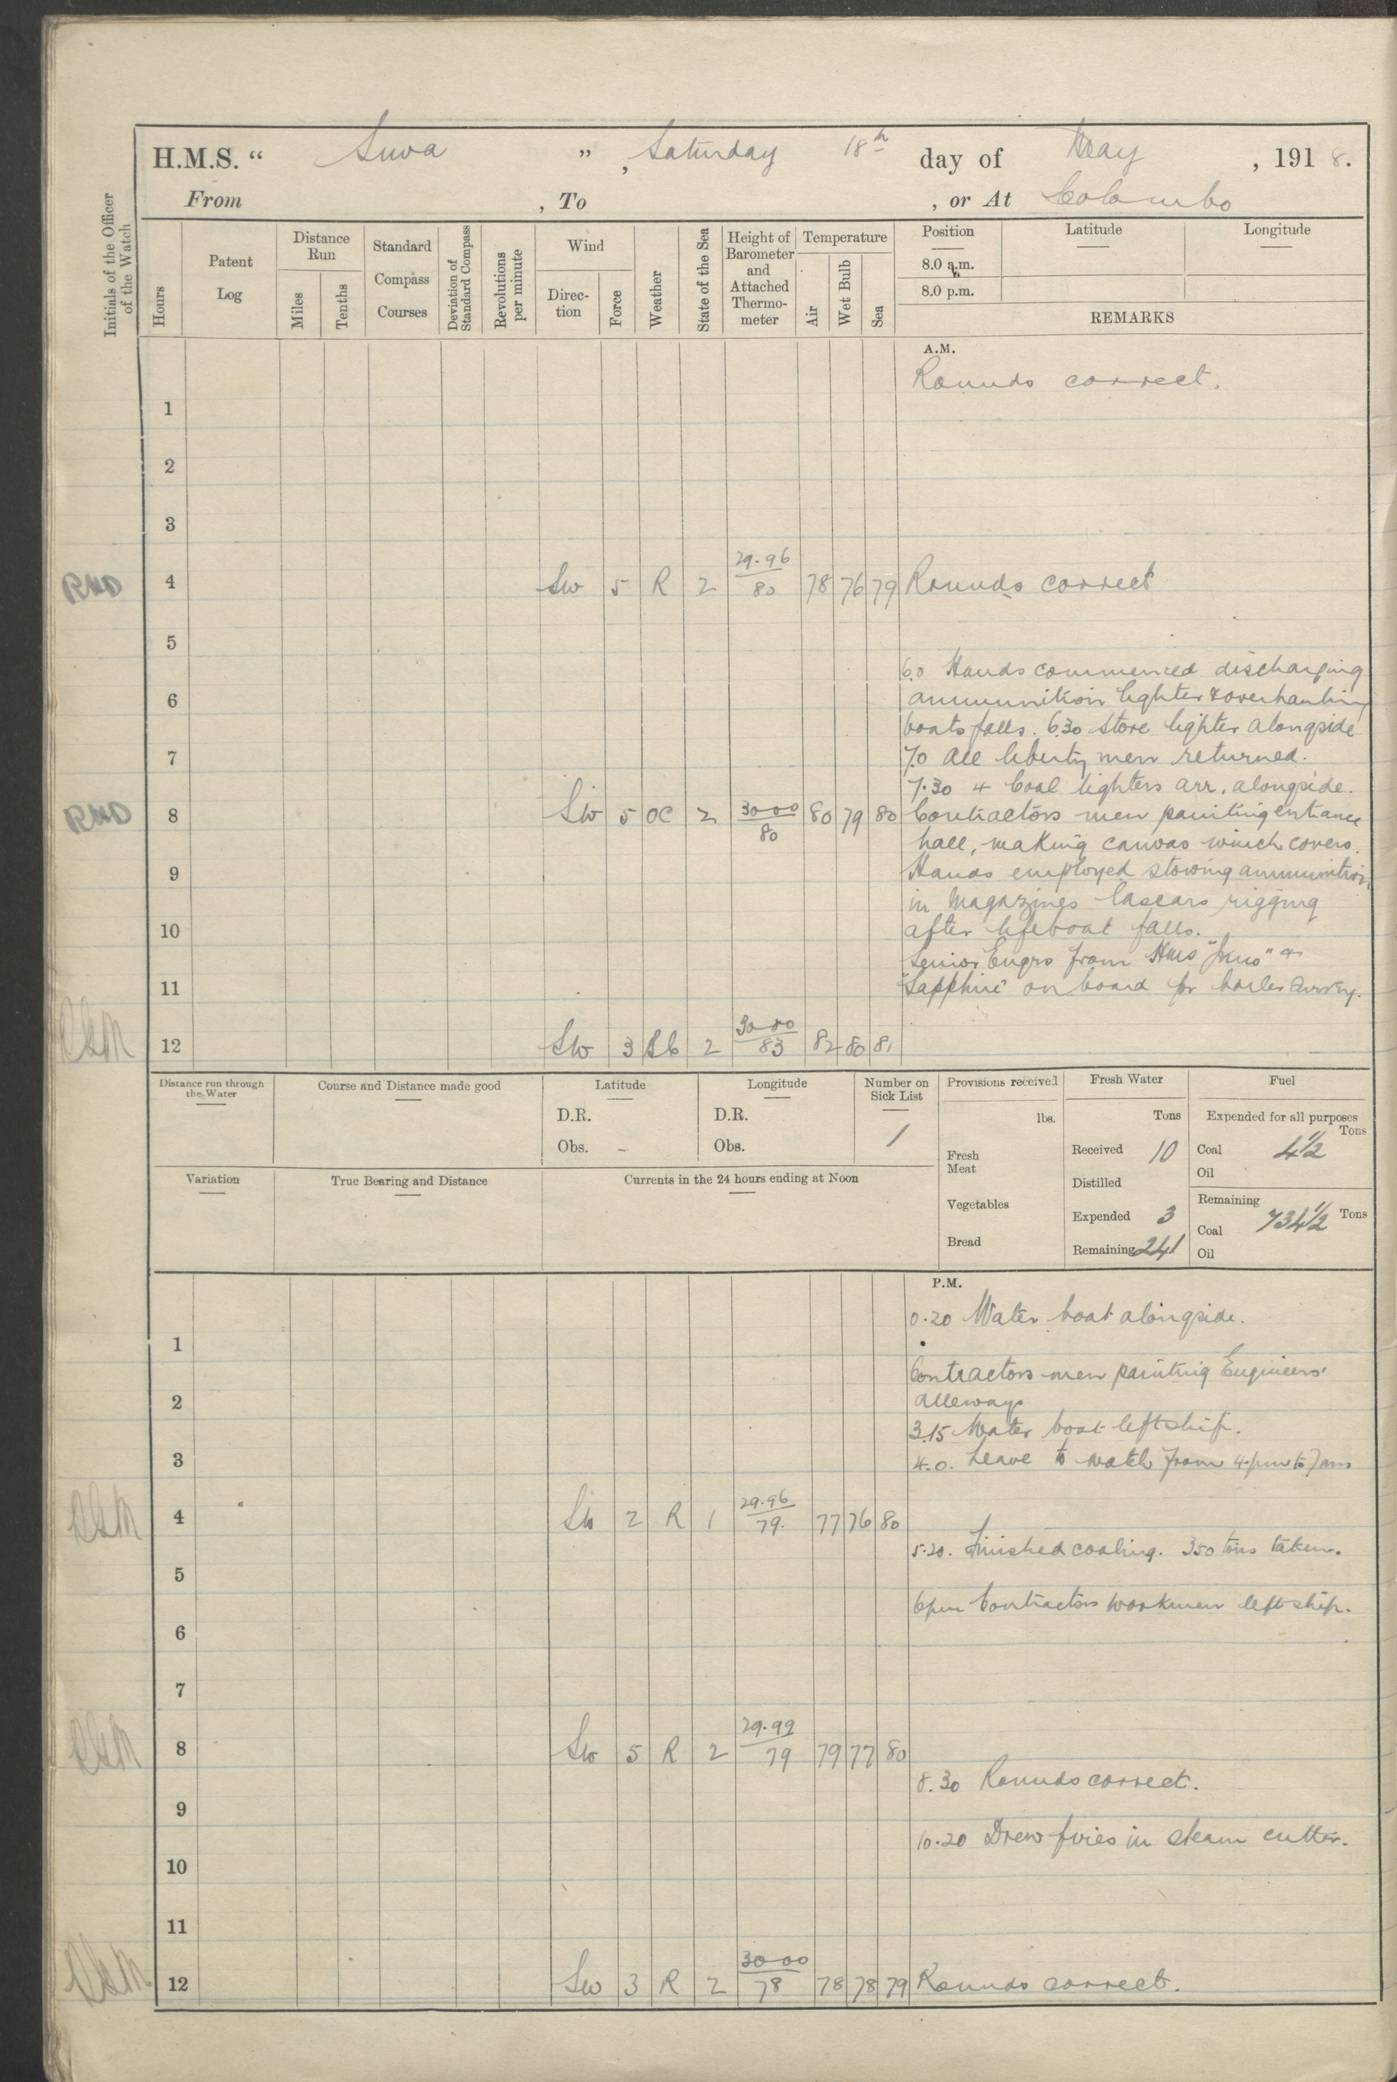 H.M.S. “ Suva ” , Saturday 18th day of May , 1918.
From , To , or At Colombo
Initials of the Officer of the Watch
Hours
Patent Log
Distance Run
Miles
Tenths
Standard Compass Courses
Deviation of Standard Compass
Revolutions per minute
Wind
Direction
Force
Weather
State of the Sea
Height of Barometer and Attached Thermometer
Temperature
Air
Wet Bulb
Sea
Position
Latitude
Longitude
8.0 a.m.
8.0 p.m.
REMARKS
A.M.
Rounds correct.
1
2
3
4 SW 5 R 2 29.96/80 78 76 79 Rounds correct
5
6.0 Hands commenced discharging
6 ammunition lighter & overhauling
boats falls. 6.30 Store lighter alongside
7 7.0 All liberty men returned.
7.30 4 Coal lighters arr. alongside.
8 SW 5 OC 2 30.00/80 80 79 80 Contractors men painting entrance
hall, making canvas winch covers.
9 Hands employed stowing ammunition
in Magazines Lascars rigging
10 after lifeboat falls.
Senior Engrs from HMS "Juno" &
11 "Sapphire" on board for boiler survey.
12 SW 3 bc 2 30.00/83 82 80 81
Distance run through the Water
Course and Distance made good
Latitude
D.R.
Obs.
Longitude
D.R.
Obs.
Number on Sick List
1
Provisions received
lbs.
Fresh Meat
Vegetables
Bread
Fresh Water
Tons
Received 10
Distilled
Expended 3
Remaining 241
Fuel
Expended for all purposes
Tons
Coal 4 1/2
Oil
Remaining
Coal 734 1/2 Tons
Oil
Variation
True Bearing and Distance
Currents in the 24 hours ending at Noon
P.M.
0.20 Water boat alongside.
1
Contractors men painting Engineers'
2 alleways
3.15 Water boat left ship.
3 4.0. Leave to watch from 4 pm to 7 am
4 SW 2 R 1 29.96/79 77 76 80
5.20. Finished coaling. 350 tons taken.
5
6 pm Contractors workmen left ship.
6
7
8 SW 5 R 2 29.99/79 79 77 80
8.30 Rounds correct.
9
10.20 Drew fires in steam cutter.
10
11
12 SW 3 R 2 30.00/78 78 78 79 Rounds correct.